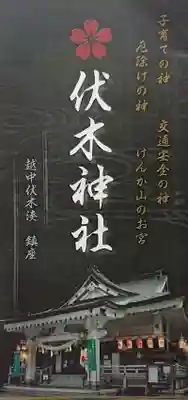 子育ての神
厄除けの神
交通安全の神
けんか山のお宮
伏木神社
越中伏木湊 鎮座